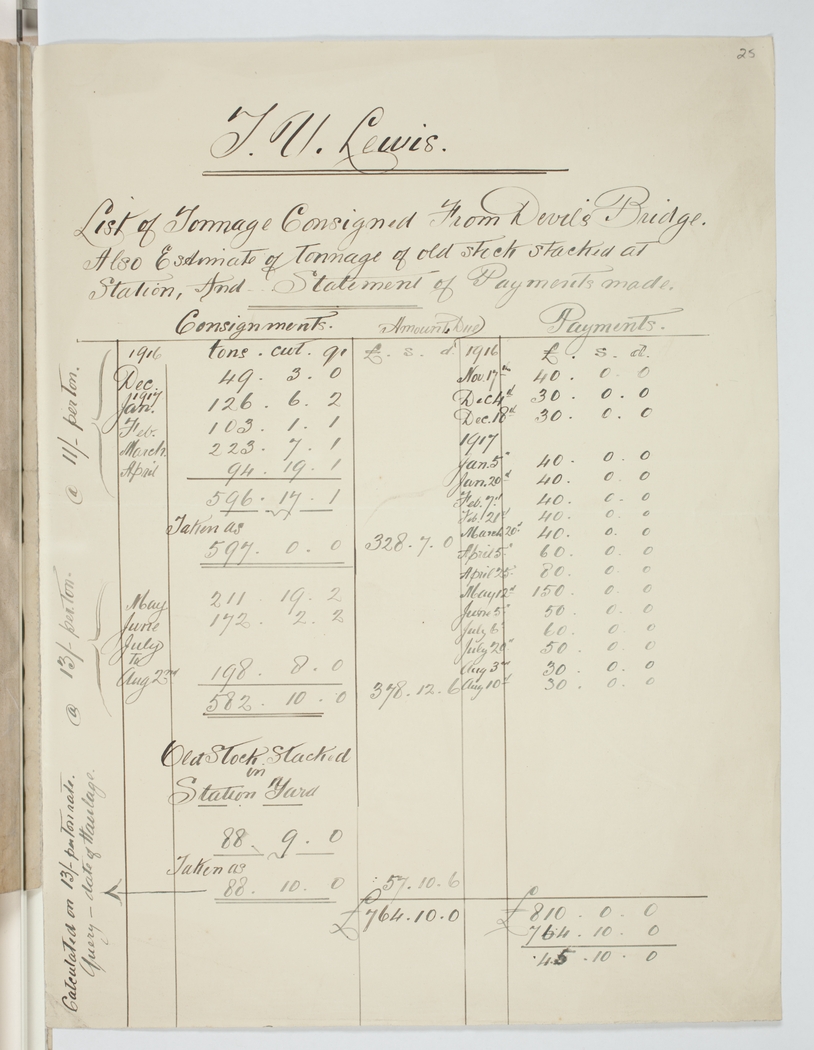 25
T. U. Lewis.
List of Tonnage Consigned From Devil's Bridge.
Also Estimate of Tonnage of old stock stacked at
Station, And Statement of Payments made.
Consignments. Amount Due Payments.
1916 tons. cwt. qr £. s. d. 1916 £. s. d.
Dec. 49. 3. 0 Nov. 17th 40. 0. 0
1917 Dec 4th 30. 0. 0
Jan. 126. 6. 2 Dec. 18th 30. 0. 0
Feb. 103. 1. 1 1917
March 223. 7. 1 Jan. 5th 40. 0. 0
April 94. 19. 1 Jan. 20th 40. 0. 0
596. 17. 1 Feb. 7th 40. 0. 0
Feb. 21st 40. 0. 0
Taken as March 20th 40. 0. 0
597. 0. 0 328. 7. 0 April 5th 60. 0. 0
April 25th 80. 0. 0
May 211. 19. 2 May 12th 150. 0. 0
June 172. 2. 2 June 5th 50. 0. 0
July July 6th 60. 0. 0
to July 20th 50. 0. 0
Aug 2nd 198. 8. 0 Aug 3rd 30. 0. 0
582. 10. 0 378. 12. 6 Aug 10th 30. 0. 0
@ 11/- per ton.
@ 13/- per ton.
Old Stock Stacked
in
Station Yard
88. 9. 0
Taken as
88. 10. 0 57. 10. 6
£764. 10. 0 £810. 0. 0
764. 10. 0
45. 10. 0
Calculated on 13/- per ton rate.
Query - date of Haulage.